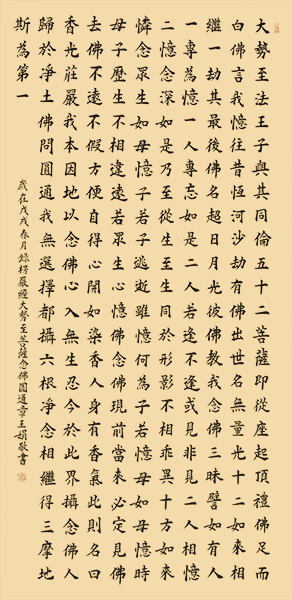 大勢至法王子與其同倫五十二菩薩即從座起頂禮佛足而
白佛言我憶往昔恒河沙劫有佛出世名無量光十二如來相
繼一劫其最後佛名超日月光彼佛教我念佛三昧譬如有人
一專為憶一人專忘如是二人若逢不逢或見非見二人相憶
二憶念深如是乃至從生至生同於形影不相乖異十方如來
憐念眾生如母憶子若子逃逝雖憶何為子若憶母如母憶時
母子歷生不相違遠若眾生心憶佛念佛現前當來必定見佛
去佛不遠不假方便自得心開如染香人身有香氣此則名曰
香光莊嚴我本因地以念佛心入無生忍今於此界攝念佛人
歸於淨土佛問圓通我無選擇都攝六根淨念相繼得三摩地
斯為第一
歲在戊戌春月錄楞嚴經大勢至菩薩念佛圓通章王娟敬書